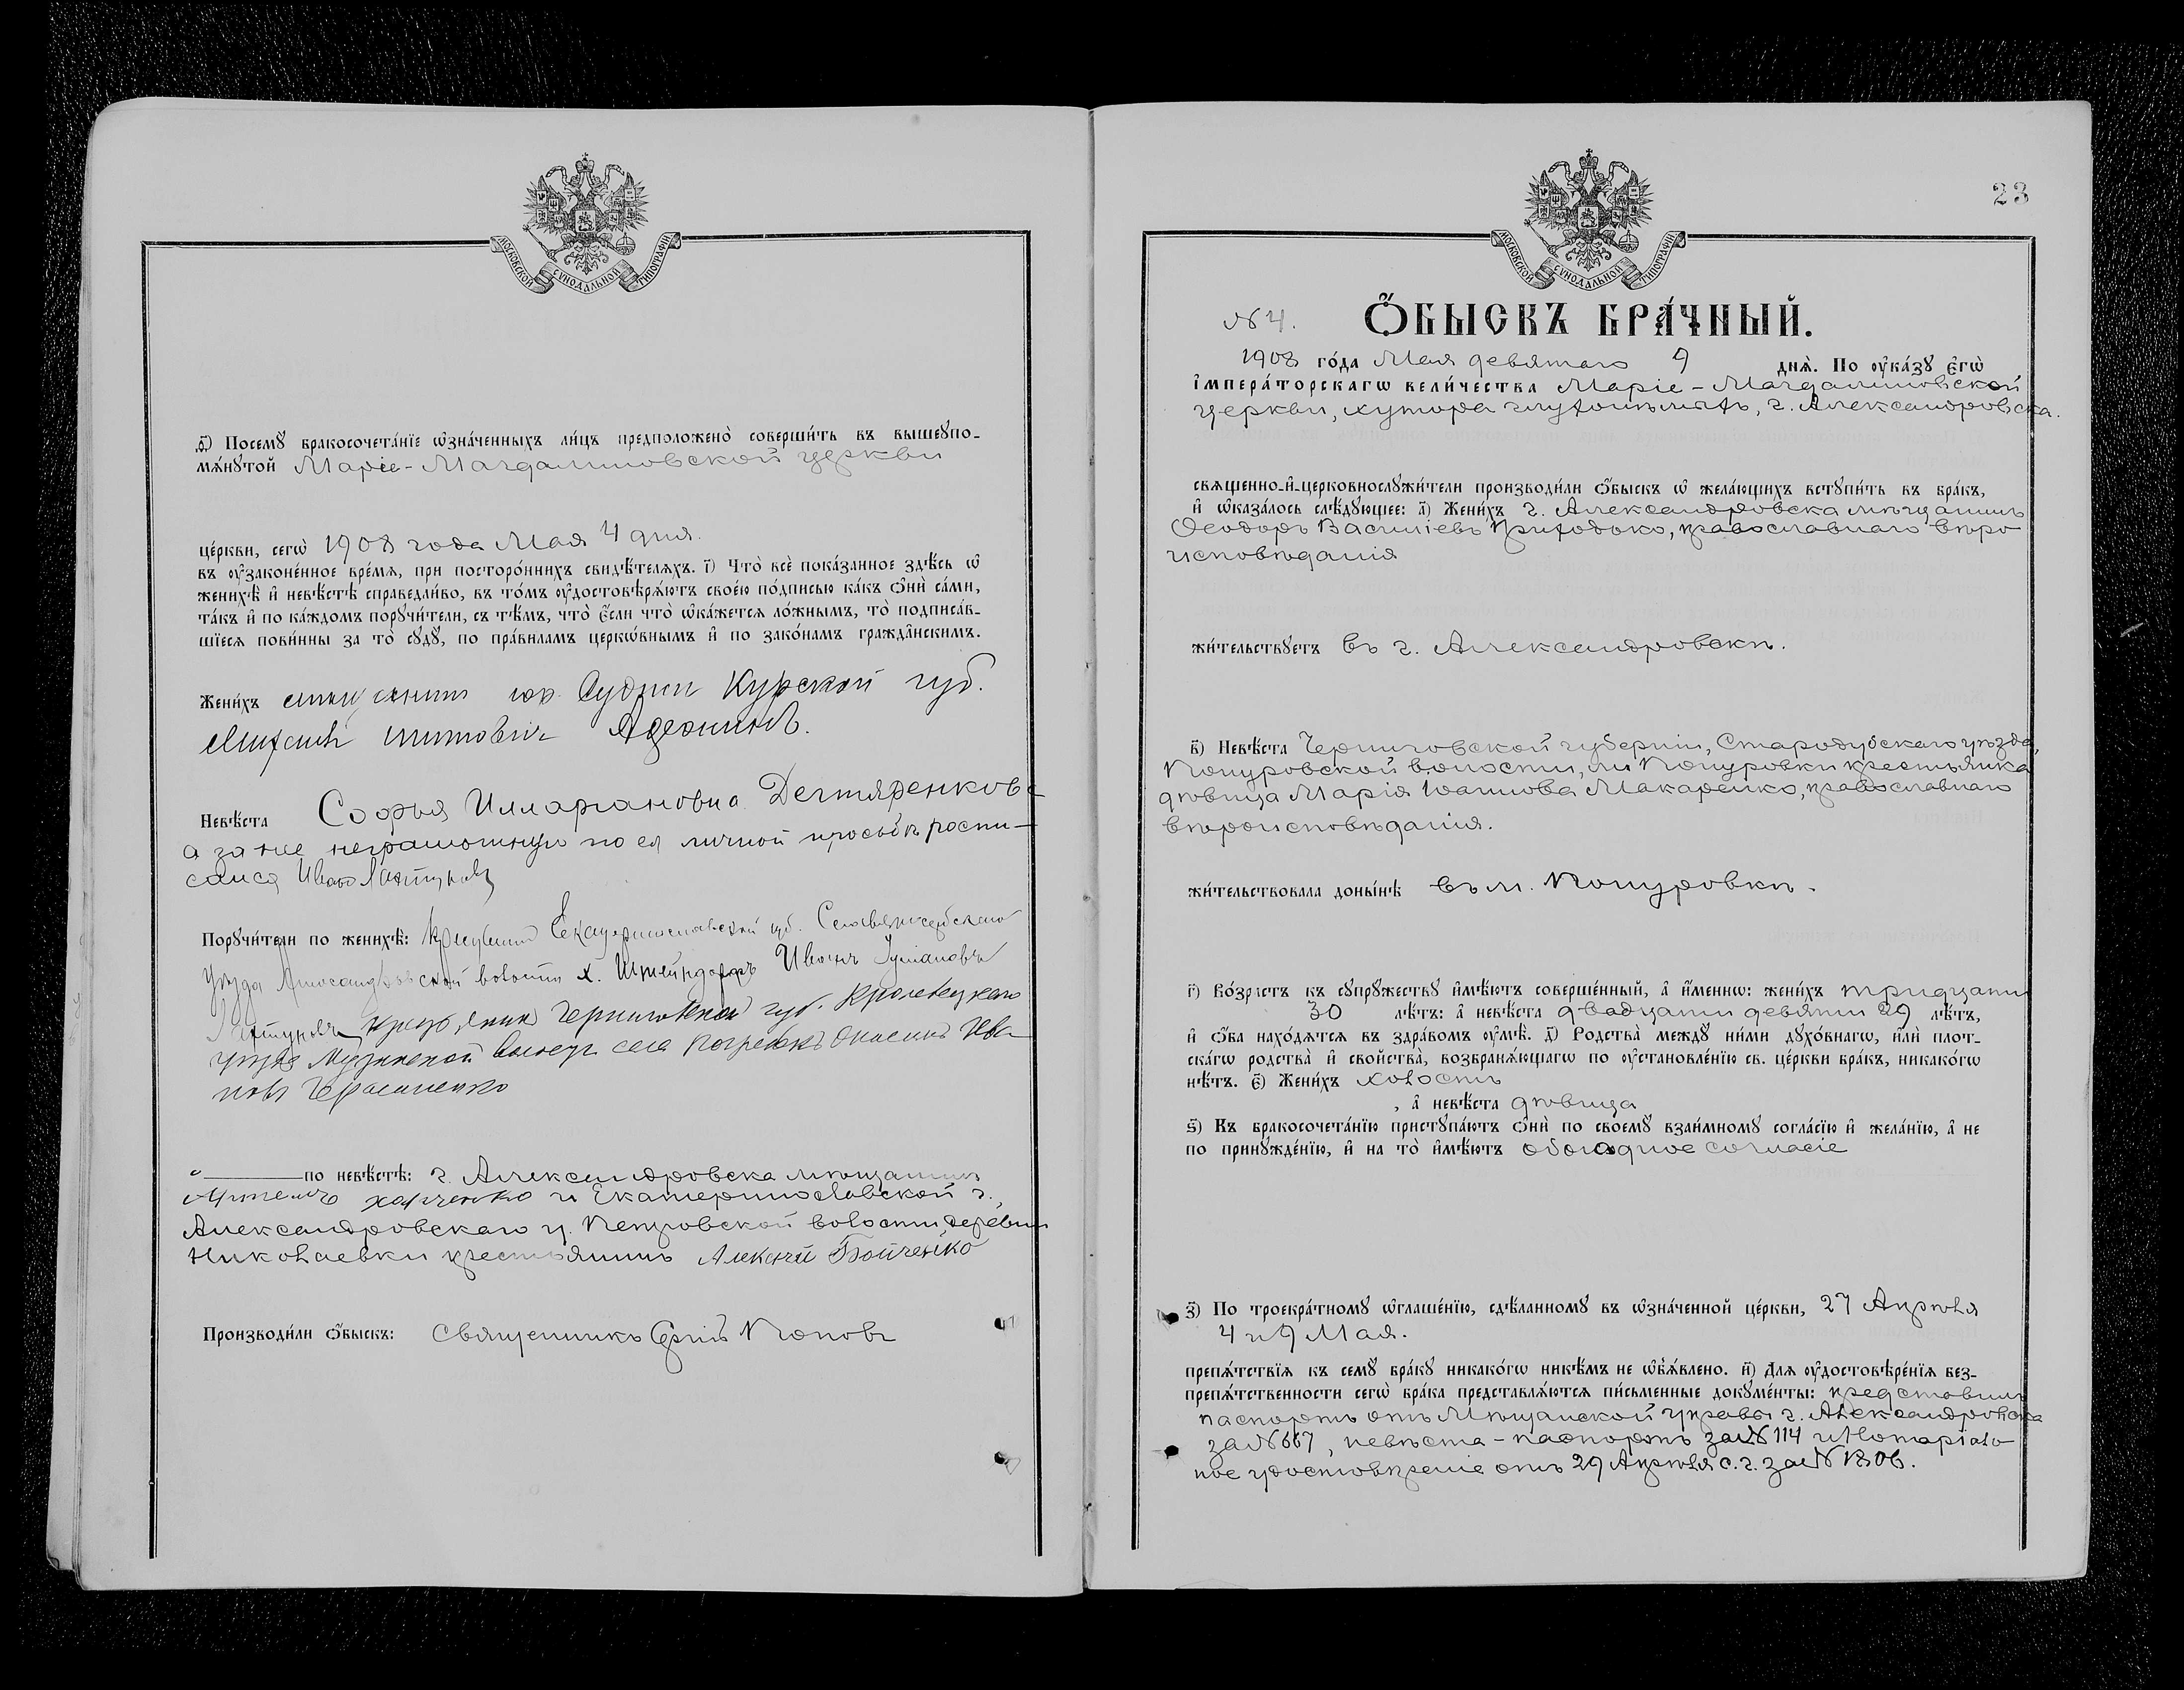 МОСКОВСКОЙ СУНОДАЛЬНОЙ ТИПОГРАФІИ
ѳ҃) Посемꙋ бракосочета́нїе ѡ҆зна́ченныхъ ли́цъ предположено̀ соверши́ть въ вышеꙋпо-
мѧ́нꙋтой Маріе-Магдалиновской церкви
це́ркви, сегѡ̀ 1908 года Мая 4 дня.
въ ᲂу҆законе́нное вре́мѧ, при посторо́ннихъ свидѣ́телѧхъ. і҃) Что̀ всѐ пока́занное здѣ́сь ѡ҆
женихѣ̀ и҆ невѣ́стѣ справедли́во, въ то́мъ ᲂу҆достовѣрѧ́ютъ свое́ю по́дписью ка́къ ѻ҆нѝ са́ми,
та́къ и҆ по ка́ждомъ порꙋчи́тели, съ тѣ́мъ, что̀ є҆́сли что̀ ѡ҆ка́жетсѧ ло́жнымъ, то̀ подписа́в-
шїесѧ пови́нны за то̀ сꙋдꙋ̀, по пра́виламъ церко́внымъ и҆ по зако́намъ гражда́нскимъ.
Жени́хъ Суджи Курской губ.
Невѣ́ста Софья Илларіановна Дегтяренкова
а за нее неграмотную по ея личной прозьбѣ роспи-
сался Иванъ
Порꙋчи́тели по женихѣ̀: Екатеринославской губ. Славяносербскаго
уѣзда Александровской волости х. Штейндорфъ Иванъ
Черниговской губ. Кролевецкаго
уѣзда волости села
Герасименко
" по невѣ́стѣ: г. Александровска мѣщанинъ
Харченко и Екатеринославской г.,
Александровскаго у. Петровской волости деревни
Николаевки крестьянинъ Алексѣй Бойченко
Производи́ли ѻ҆́быскъ: Священникъ Сергій Поповъ
23
МОСКОВСКОЙ СУНОДАЛЬНОЙ ТИПОГРАФІИ
№ 4. Ѻ҆́БЫСКЪ БРА́ЧНЫЙ.
1908 го́да Мая девятаго 9 днѧ̀. По ᲂу҆ка́зꙋ є҆гѡ̀
і҆мпера́торскагѡ вели́чества Маріе-Магдалиновской
церкви, хутора г. Александровска.
свѧще́нно-и҆-церковнослꙋжи́тели производи́ли ѻ҆́быскъ ѡ҆ жела́ющихъ встꙋпи́ть въ бра́къ,
и҆ ѡ҆каза́лось слѣ́дꙋющее: а҃) Жени́хъ г. Александровска мѣщанинъ
Ѳеодоръ Васильевъ Приходько, православнаго вѣро
исповѣданія
жи́тельствꙋетъ въ г. Александровскѣ.
в҃) Невѣ́ста Черниговской губерніи, Стародубскаго уѣзда,
Понуровской волости, м. Понуровки крестьянка
дѣвица Марія Іоаннова Макаренко, православнаго
вѣроисповѣданія.
жи́тельствовала доны́нѣ въ м. Понуровкѣ.
г҃) Во́зрастъ къ сꙋпрꙋ́жествꙋ и҆мѣ́ютъ соверше́нный, а҆ и҆́менно: жени́хъ тридцати
30 лѣ́тъ: а҆ невѣ́ста двадцати девяти 29 лѣ́тъ,
и҆ ѻ҆́ба нахо́дѧтсѧ въ здра́вомъ ᲂу҆мѣ̀. д҃) Родства̀ междꙋ̀ ни́ми дꙋхо́внагѡ, и҆лѝ плот-
ска́гѡ родства̀ и҆ свойства̀, возбранѧ́ющагѡ по ᲂу҆становле́нїю св. це́ркви бра́къ, никако́гѡ
нѣ́тъ. є҃) Жени́хъ холостъ
, а҆ невѣ́ста дѣвица
ѕ҃) Къ бракосочета́нїю пристꙋпа́ютъ ѻ҆нѝ по своемꙋ̀ взаи́мномꙋ согла́сїю и҆ жела́нїю, а҆ не
по принꙋжде́нїю, и҆ на то̀ и҆мѣ́ютъ обоюдное согласіе
з҃) По троекра́тномꙋ ѡ҆глаше́нїю, сдѣ́ланномꙋ въ ѡ҆зна́ченной це́ркви, 27 Апрѣля
4 и 9 Мая.
препѧ́тствїѧ къ семꙋ̀ бра́кꙋ никако́гѡ никѣ́мъ не ѡ҆б̾ѧ́влено. и҃) Для ᲂу҆достовѣре́нїѧ без-
препѧ́тственности сегѡ̀ бра́ка представлѧ́ютсѧ пи́сьменные докꙋме́нты: представилъ
паспортъ отъ Мѣщанской управы г. Александровска
за № 667, невѣста - паспортъ за № 114 и Нотаріаль-
ное удостовѣреніе отъ 29 Апрѣля с. г. за № 1806.